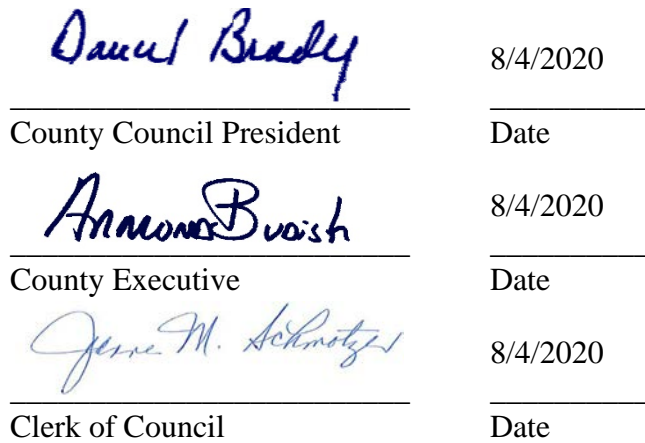 Daniel Brady 8/4/2020
County Council President Date
Armond Budish 8/4/2020
County Executive Date
Jeanne M. Schmotzer 8/4/2020
Clerk of Council Date